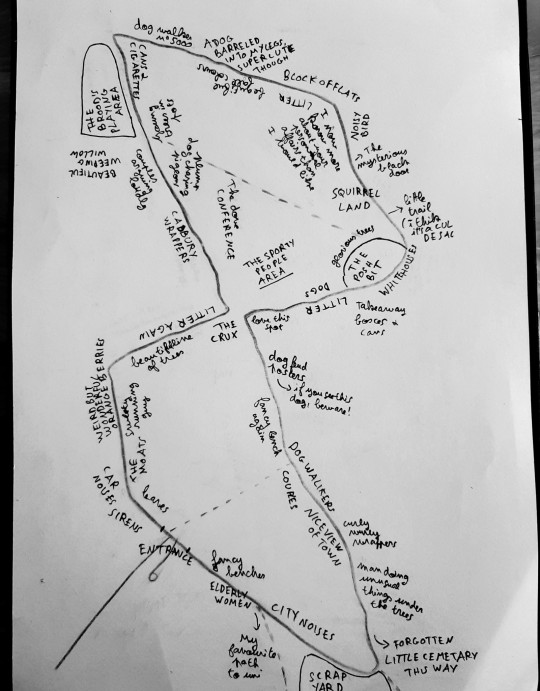 dog walkers no 5000
A DOG
BARRELED
INTO MY LEGS,
SUPER CUTE
THOUGH
BLOCK OF FLATS
beautiful
LITTER
CANS &
CIGARETTES
THE
BROODS
PLAYING
AREA
BEAUTIFUL
WEEPING
WILLOW
couples
arguing
loudly
dog chasing
pigeon
CADBURY
WRAPPERS
The dove
CONFERENCE
I now
know more
about your
personal
affairs than
I would like
NOISY
BIRD
→ The
mysterious
black
door
SQUIRREL
LAND
→ little
trail
(i think
it's a CUL
DE SAC
glorious trees
THE
POSH
BIT
WHITE HOUSES
THE SPORTY
PEOPLE
AREA
DOGS
LITTER
Takeaway
boxes &
cans
LITTER AGAIN
THE
CRUX
love this
spot
beautiful line
of trees
WEIRD BUT
WONDERFUL
ORANGE BERRIES
THE MOATS
sweaty
running
guy
dog find
posters
→ if you see this
dog, beware!
fancy bench
again
CAR
NOISES
SIRENS
leaves
DOG WALKERS
COUPLES
NICE VIEW
OF TOWN
curly
wurly
wrappers
ENTRANCE
fancy
benches
ELDERLY
WOMEN
CITY NOISES
man doing
unusual
things under
the trees
My
favourite
path
to uni
→ FORGOTTEN
LITTLE CEMETARY
THIS WAY
SCRAP
YARD